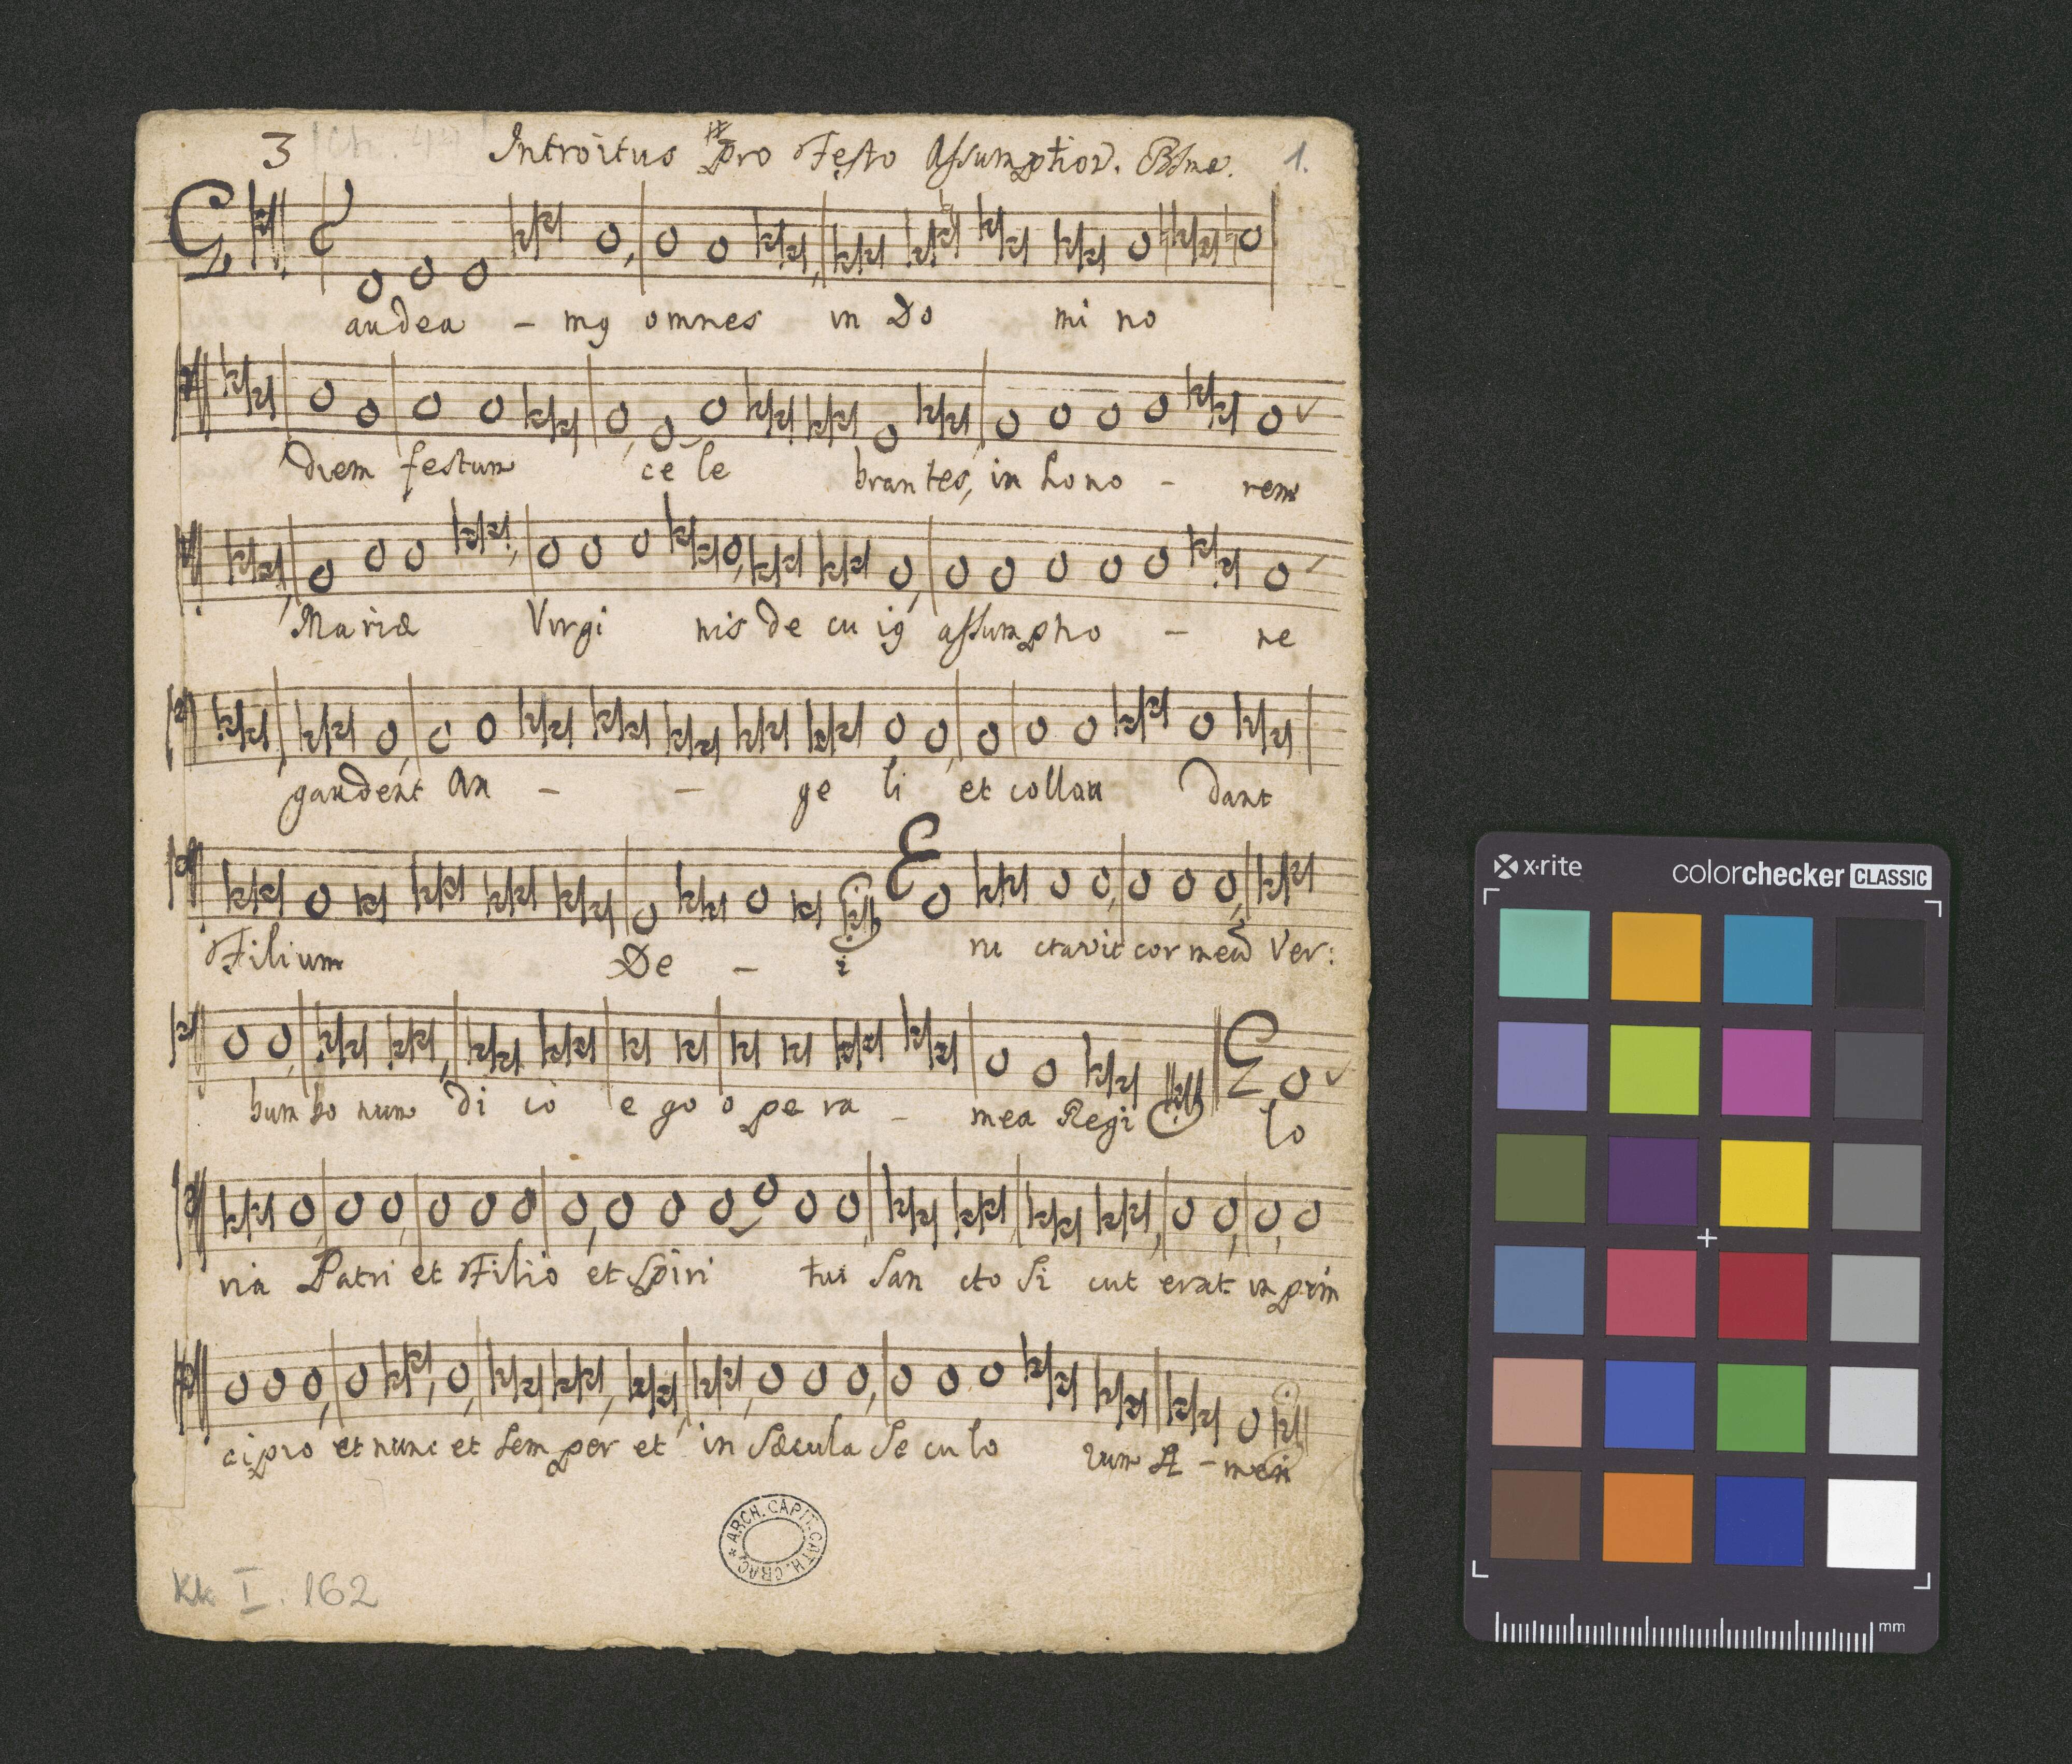 3 Introitus pro Festo Assumption. 1.
Gaudea - mq omnes in Do mi no
diem festum ce le brantes, in hono - rem
Mariæ Virgi nis de cu iq assumptio - ne
gaudent An - - ge li et collau dant
Filium De - i E ru ctavit cor meu Ver:
bum bo num di co e go o pe ra - mea Regi Glo
ria Patri et Filio et Spiri tui San cto Si cut erat in prin
cipio et nunc et Sem per et in Sæcula Se cu lo rum A - men
ARCH. CAPIT. CATH. CRAC.
Kk I. 162
x·rite colorchecker CLASSIC
mm